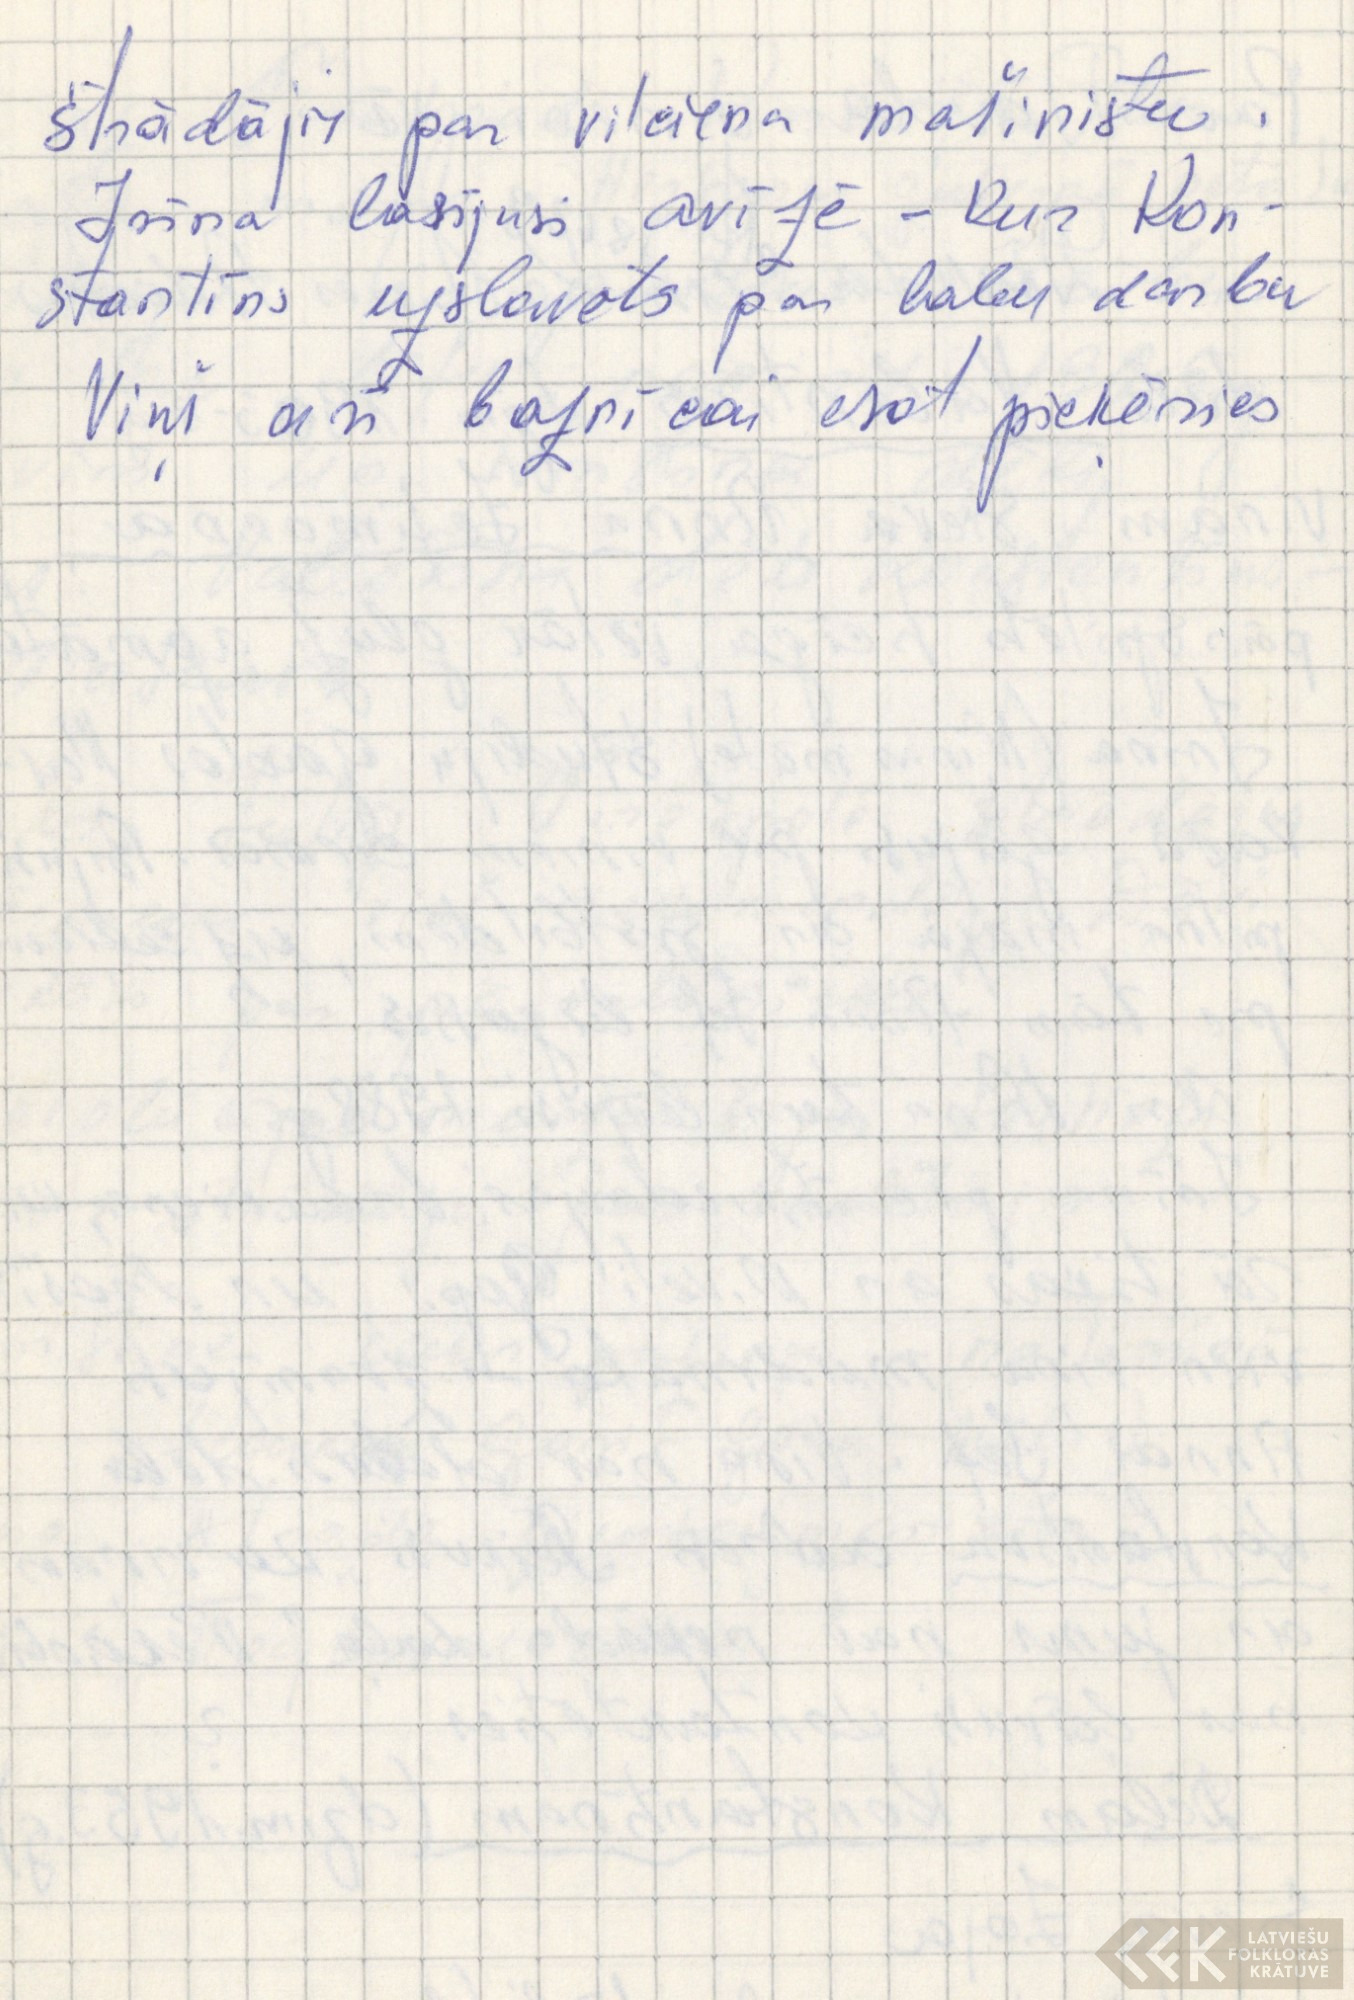 strādājis par vilciena mašīnistu.
Irina lasījusi avīzē – kur Kon-
stantīns uzslavēts par labu darbu
Viņš arī baznīcai esot pieķēries
LATVIEŠU
FOLKLORAS
KRĀTUVE